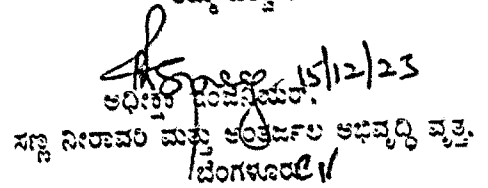 15/12/23
ಅಧೀಕ್ಷಕ ಇಂಜಿನಿಯರ್,
ಸಣ್ಣ ನೀರಾವರಿ ಮತ್ತು ಅಂತರ್ಜಲ ಅಭಿವೃದ್ಧಿ ವೃತ್ತ,
ಬೆಂಗಳೂರು